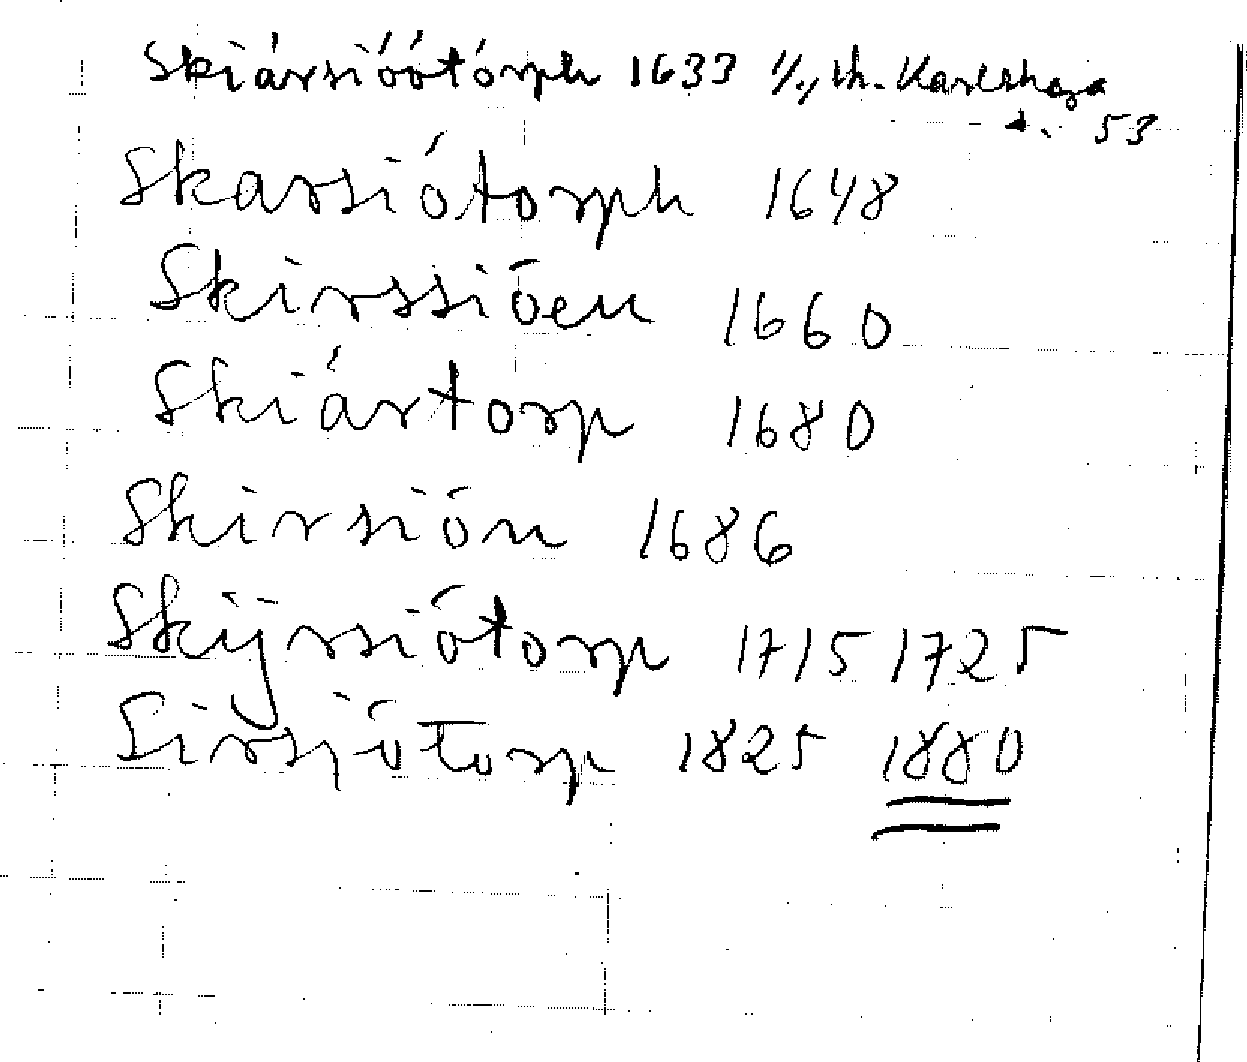 Skiársióótórph 1633 1/1, th. Karlskoga
s. 53
Skarsiótorph 1648
Skirssióen 1660
Skiártorp 1680
Skirsión 1686
Skijrsiótorp 1715 1725
Sirsjótorp 1825 1880